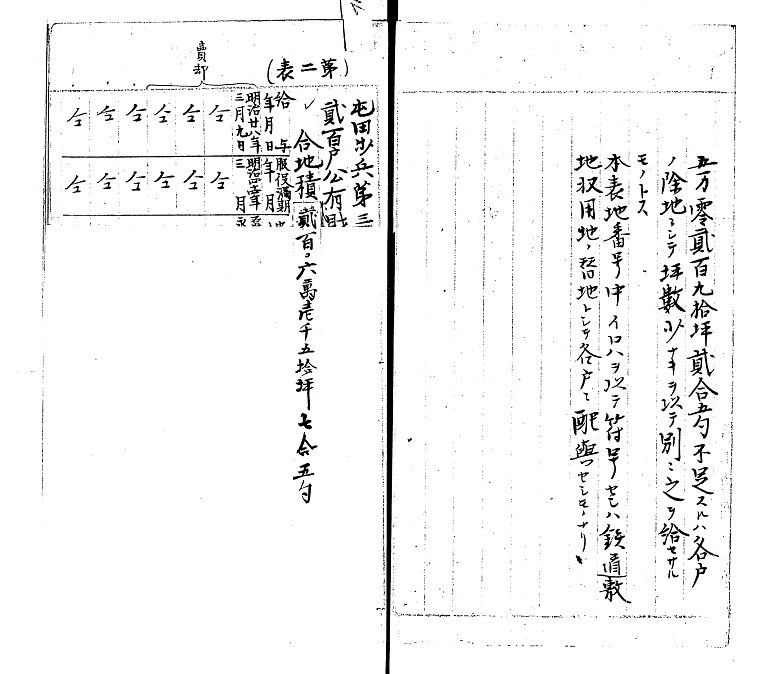 五万零貳百九拾坪貳合五勺不足スルハ各戸
ノ除地ニシテ坪數少ナキヲ以テ別ニ之ヲ給セサル
モノトス
本表地番号中イロハヲ以テ符号セシハ鉄道敷
地収用地ノ替地トシテ各戸ニ配與セシモノナリ
(第二表)
屯田歩兵第三
貳百戸公有財
合地積貳百〇六萬壱千五拾坪七合五勺
給与
年月日
服役満期
年月
明治廿八年
三月九日
明治
三月
賣却
仝 仝 仝 仝 仝 仝
仝 仝 仝 仝 仝 仝